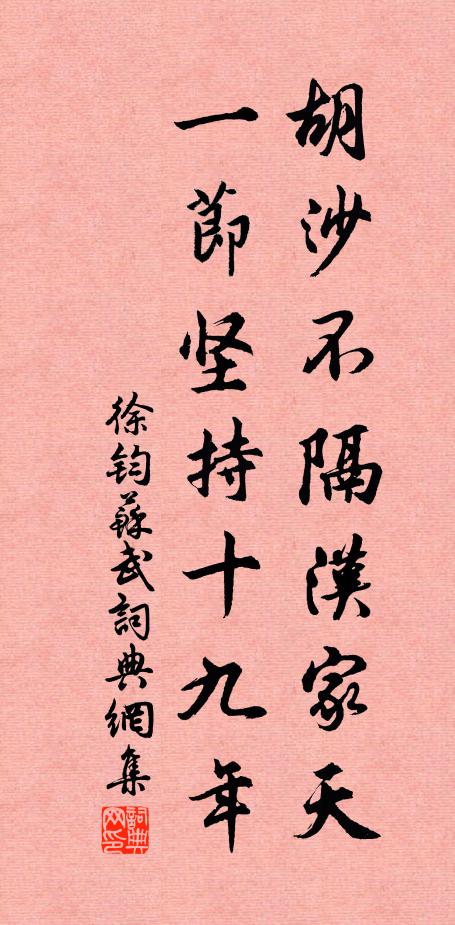 胡沙不隔漢家天
一節坚持十九年
徐鈞蘇武詞典網集
詞典
网印